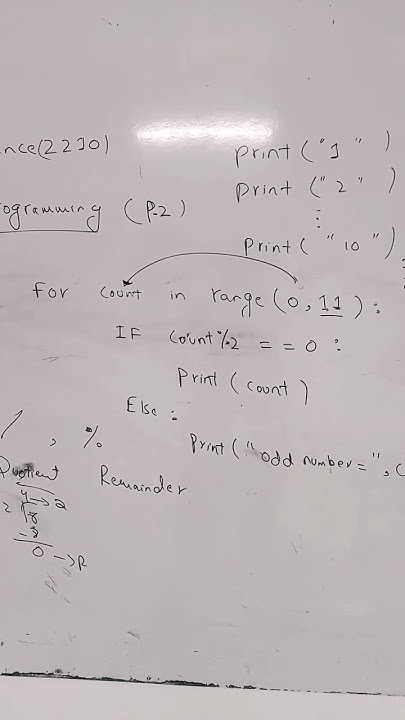 nce(2230)
ogramming (P.2)
print ("1 ")
print ("2 ")
⋮
print ("10 ")
For count in range (0,11) :
IF count%2 == 0 :
Print (count)
Else :
Print ("odd number = ", c
/ , %
Quotient Remainder
2
8
-8
0 → R